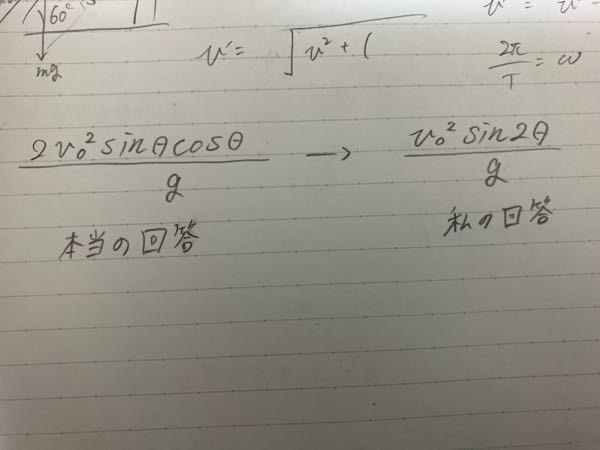 60°
mg
v' = √v² + (
2π/T = ω
2v₀² sinθcosθ/g → v₀² sin2θ/g
本当の回答
私の回答